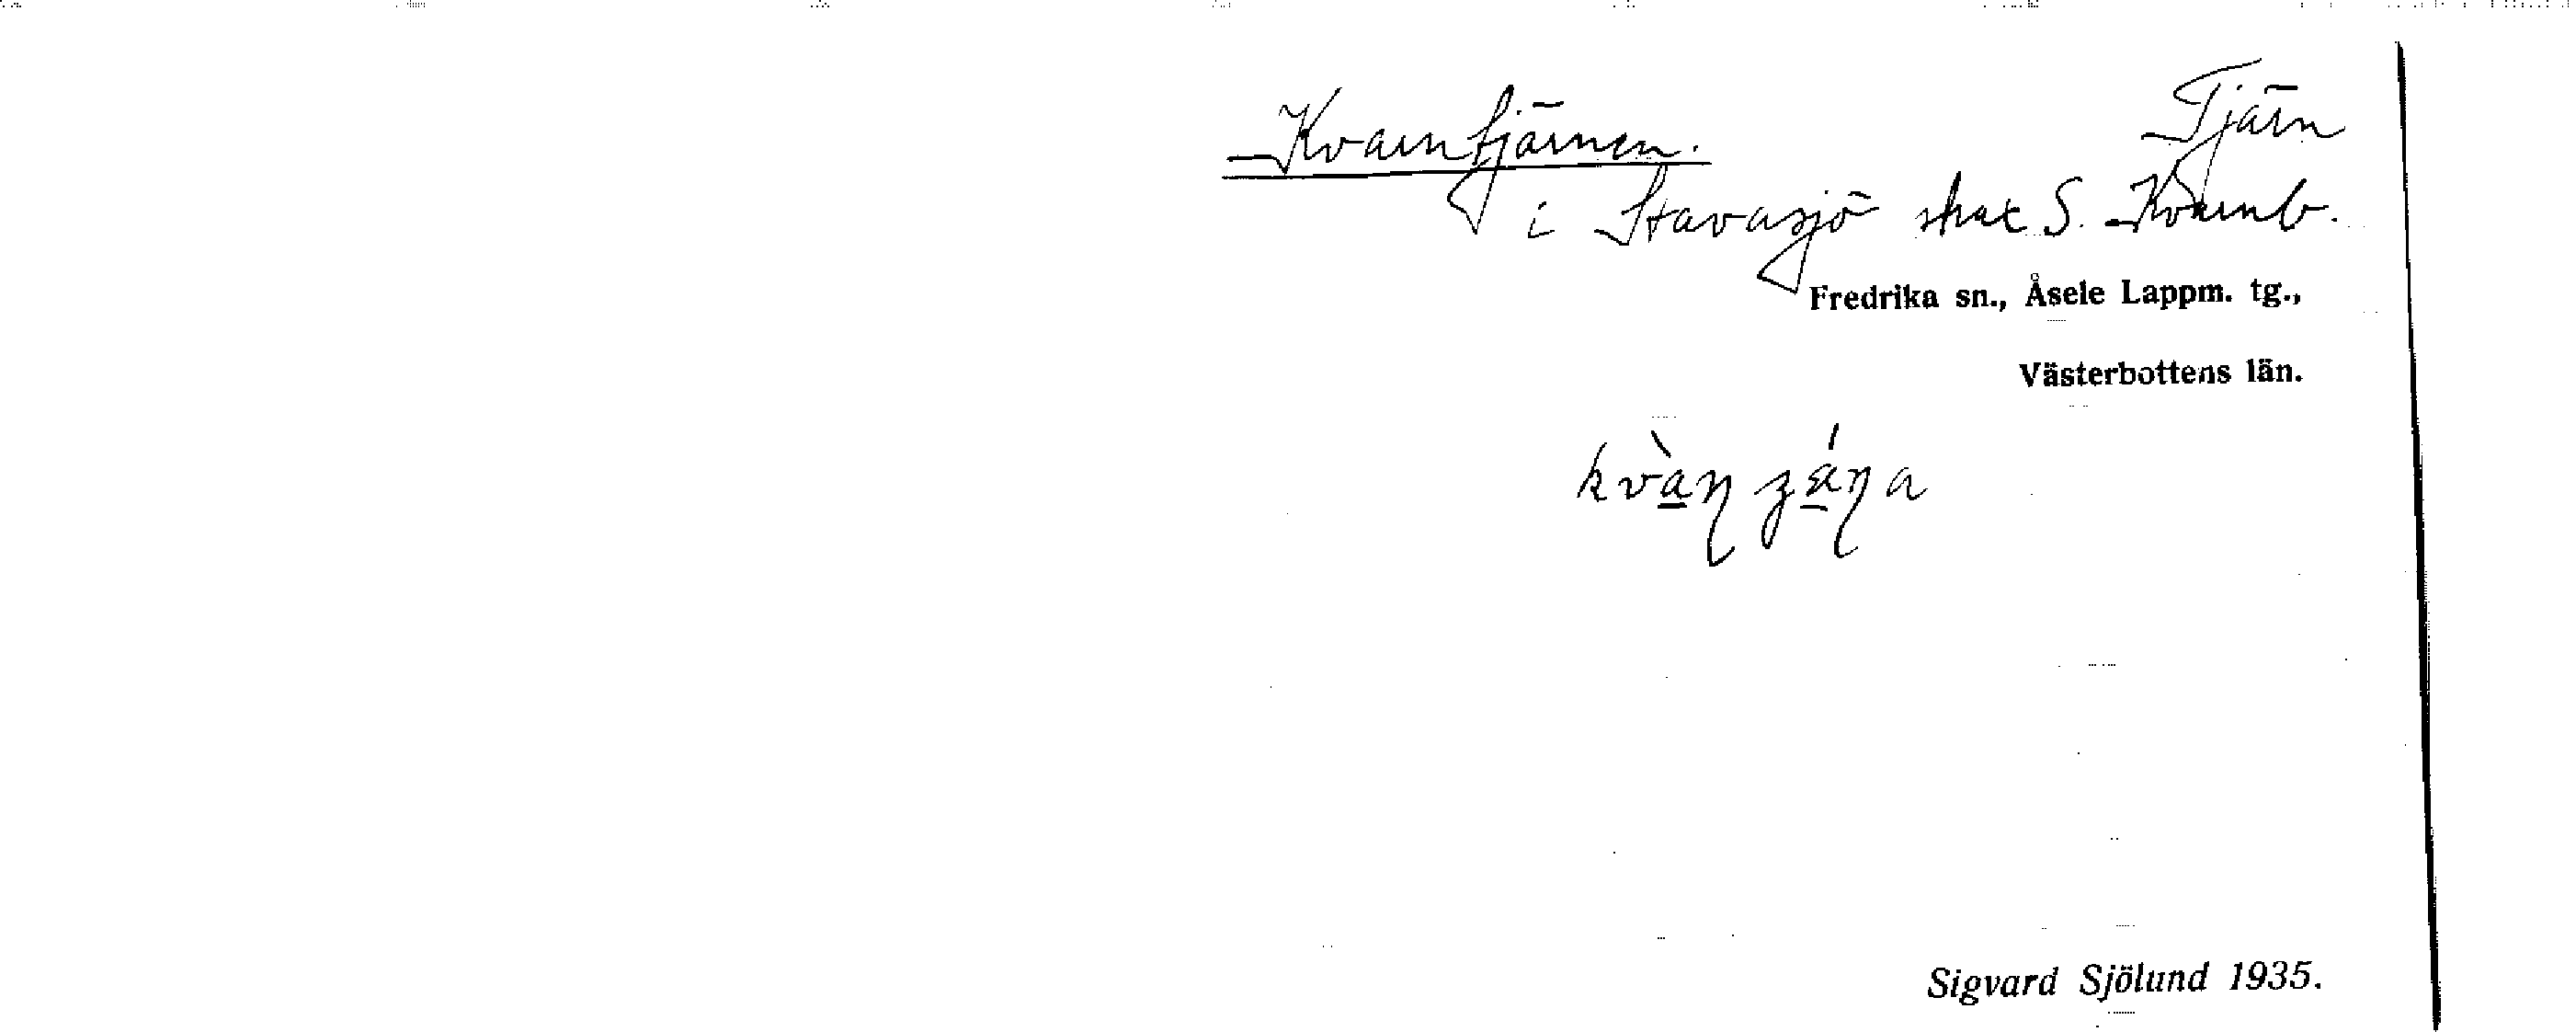 Kvarntjärnen. Tjärn
i Stavasjö strax S. Kvarnb.
Fredrika sn., Åsele Lappm. tg.,
Västerbottens län.
Sigvard Sjölund 1935.